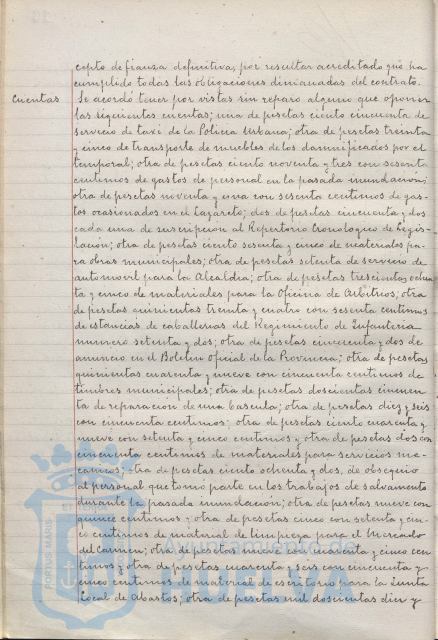 cepto de fianza definitiva, por resultar acreditado que ha
cumplido todas las obligaciones dimanadas del contrato.
Cuentas
Se acordó tener por vistas sin reparo alguno que oponer
las siguientes cuentas; una de pesetas ciento cincuenta de
servicio de taxi de la Policia Urbana; otra de pesetas treinta
y cinco de transporte de muebles de los damnificados por el
temporal; otra de pesetas ciento noventa y tres con sesenta
centimos de gastos de personal en la pasada inundación;
otra de pesetas noventa y una con sesenta centimos de gas-
tos ocasionados en el Lazareto; dos de pesetas cincuenta y dos
cada una de suscripcion al Repertorio cronologico de Legis-
lacion; otra de pesetas ciento sesenta y cinco de materiales pa-
ra obras municipales; otra de pesetas setenta de servicio de
automovil para la Alcaldia; otra de pesetas trescientas ochen
ta y cinco de materiales para la Oficina de Arbitrios; otra
de pesetas quinientas treinta y cuatro con sesenta centimos
de estancias de caballerias del Regimiento de Infanteria
numero setenta y dos; otra de pesetas cincuenta y dos de
anuncio en el Boletin Oficial de la Provincia; otra de pesetas
quinientas cuarenta y nueve con cincuenta centimos de
timbres municipales; otra de pesetas doscientas cincuen
ta de reparación de una bascula; otra de pesetas diez y seis
con cincuenta centimos; otra de pesetas ciento cuarenta y
nueve con setenta y cinco centimos y otra de pesetas dos con
cincuenta centimos de materiales para servicios me-
canicos; otra de pesetas ciento ochenta y dos, de obsequio
al personal que tomó parte en los trabajos de salvamento
durante la pasada inundación; otra de pesetas nueve con
quince centimos y otra de pesetas cinco con setenta y cin-
co centimos de material de limpieza para el Mercado
del Carmen; otra de pesetas nueve cuarenta y cinco cen
timos y otra de pesetas cuarenta y seis con cincuenta y
cinco centimos de material de escritorio para la Junta
Local de Abastos; otra de pesetas mil doscientas diez y
PORTUS MAGNIS